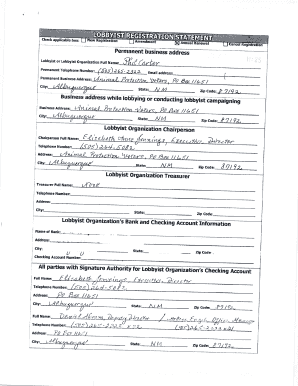 LOBBYIST REGISTRATION STATEMENT
Check applicable box: New Registration Amendment Annual Renewal Cancel Registration
Permanent business address
Lobbyist or Lobbyist Organization Full Name: Phil Carter
Permanent Telephone Number: (505) 265-2322 Email address
Permanent Business Address: Animal Protection Voters, PO Box 11651
City: Albuquerque State: NM Zip Code: 87192
Business address while lobbying or conducting lobbyist campaigning
Business Address: Animal Protection Voters, PO Box 11651
City: Albuquerque State: NM Zip Code: 87192
Lobbyist Organization Chairperson
Chairperson Full Name: Elizabeth Jennings, Executive Director
Telephone Number: (505) 264-5082
Address: Animal Protection Voters, PO Box 11651
City: Albuquerque State: NM Zip Code: 87192
Lobbyist Organization Treasurer
Treasurer Full Name: None
Telephone Number:
Address:
City: State: Zip Code:
Lobbyist Organization's Bank and Checking Account Information
Name of Bank:
Address:
City: State: Zip Code:
Checking Account Number:
All parties with Signature Authority for Lobbyist Organization's Checking Account
Full Name: Elizabeth Jennings, Executive Director
Telephone Number: (505) 264-5082
Address: PO Box 11651
City: Albuquerque State: NM Zip Code: 87192
Full Name: Daniel Abram, Deputy Director
Telephone Number: (505) 265-2322
Address: PO Box 11651
City: Albuquerque State: NM Zip Code: 87192